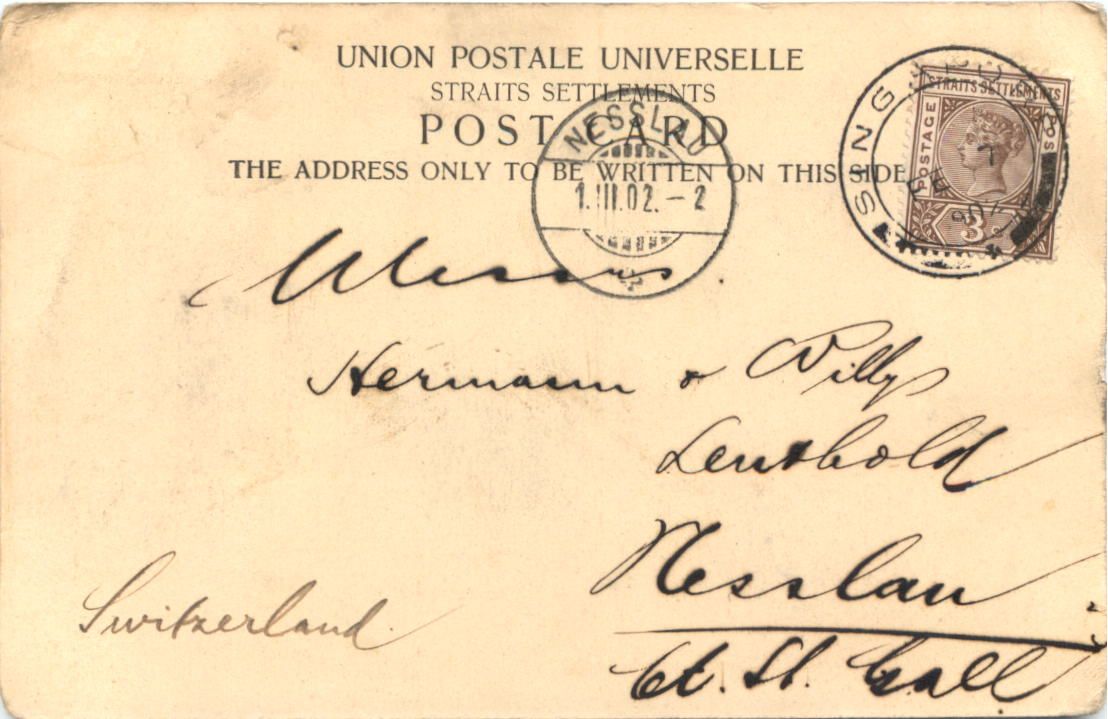 UNION POSTALE UNIVERSELLE
STRAITS SETTLEMENTS
POST CARD
THE ADDRESS ONLY TO BE WRITTEN ON THIS SIDE
NESSLAU
1.III.02.-2
SINGAPORE
STRAITS SETTLEMENTS
POSTAGE
3
Messrs.
Hermann & Willy
Leuthold
Nesslau
Ct. St. Gall
Switzerland.